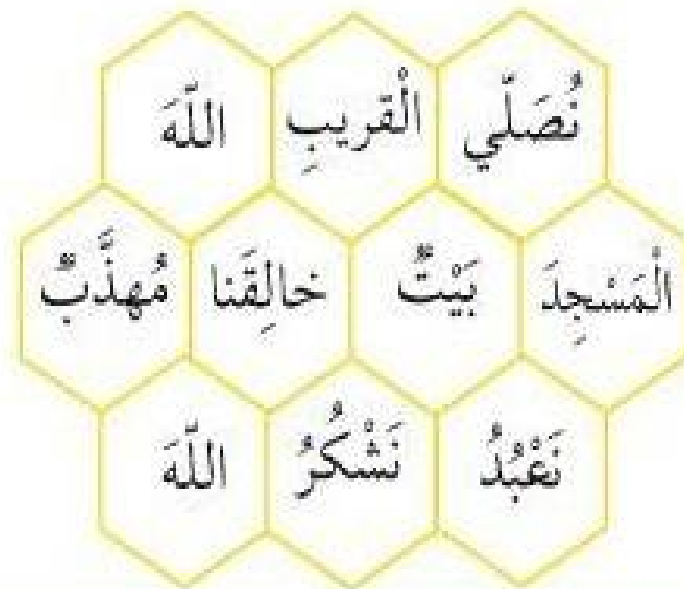 نُصَلّي الْقريبِ اللّهَ
الْمَسْجِدَ بَيْتٌ خالِقَنا مُهذَّبٌ
نَعْبُدُ نَشْكُرُ اللّهَ